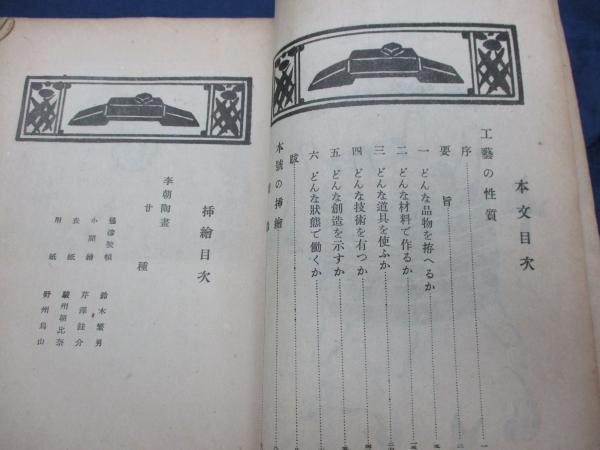 本文目次
工藝の性質
序
要旨
一 どんな品物を拵へるか
二 どんな材料で作るか
三 どんな道具を使ふか
四 どんな技術を有つか
五 どんな創造を示すか
六 どんな狀態で働くか
跋
本號の挿繪
挿繪目次
李朝陶畫 廿種
小間繪 鈴木繁男
表紙 芹澤銈介
用紙 駿州朝比奈
野州烏山